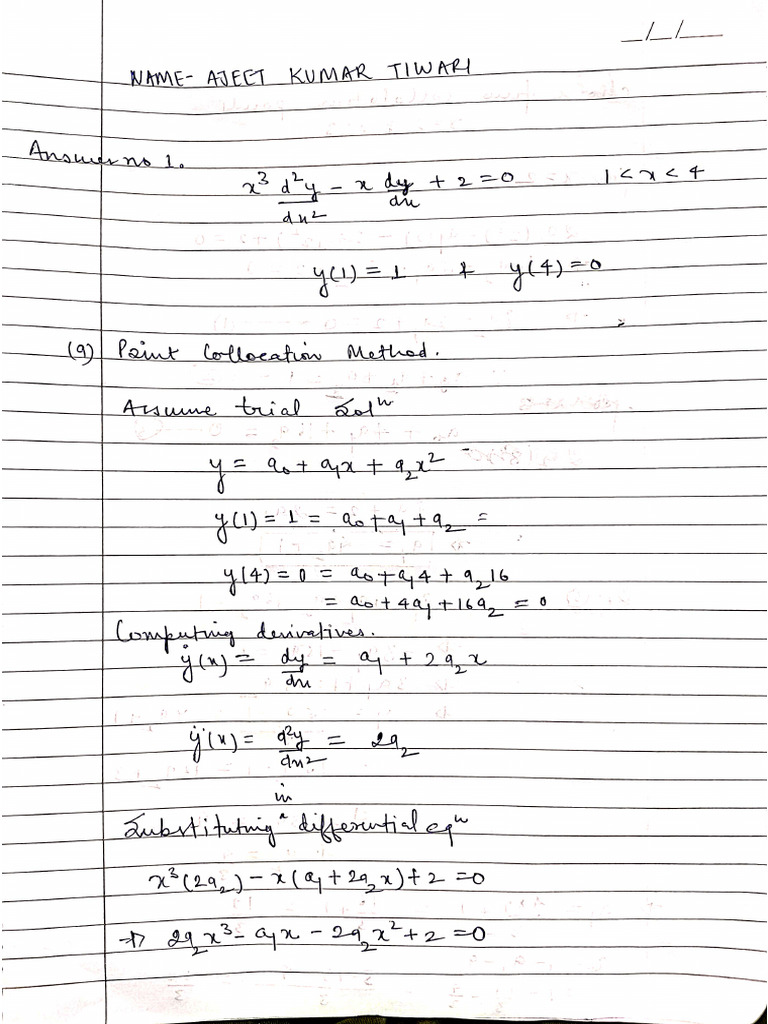 _/_/__
NAME- AJEET KUMAR TIWARI
Answer no 1.
x³ d²y/dx² - x dy/dx + 2 = 0    1 < x < 4
y(1) = 1    &    y(4) = 0
(a) Point Collocation Method.
Assume trial Solⁿ
y = a₀ + a₁x + a₂x²
y(1) = 1 = a₀ + a₁ + a₂ =
y(4) = 0 = a₀ + a₁4 + a₂16
= a₀ + 4a₁ + 16a₂ = 0
Computing derivatives.
ẏ(x) = dy/dx = a₁ + 2a₂x
ÿ(x) = d²y/dx² = 2a₂
Substituting in differential eqⁿ
x³(2a₂) - x(a₁ + 2a₂x) + 2 = 0
⇒ 2a₂x³ - a₁x - 2a₂x² + 2 = 0